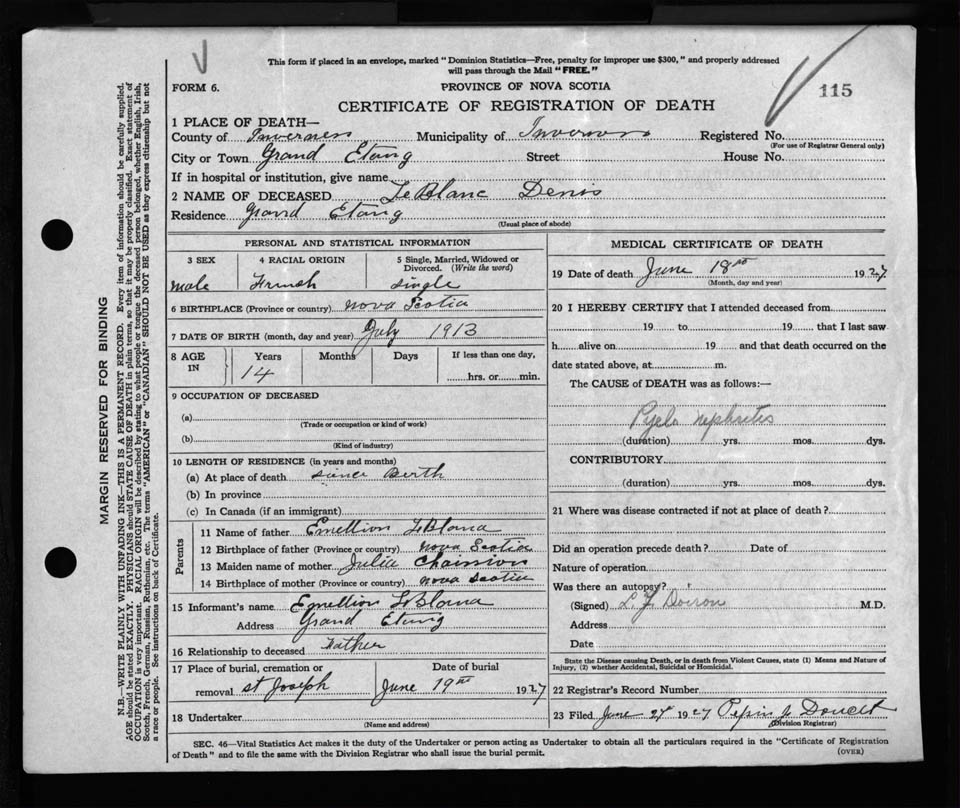 This form if placed in an envelope, marked "Dominion Statistics—Free, penalty for improper use $300," and properly addressed
will pass through the Mail "FREE."
FORM 6.
PROVINCE OF NOVA SCOTIA
115
CERTIFICATE OF REGISTRATION OF DEATH
1 PLACE OF DEATH—
County of Inverness Municipality of Inverness Registered No.
(For use of Registrar General only)
City or Town Grand Etang Street House No.
If in hospital or institution, give name
2 NAME OF DECEASED LeBlanc Denis
Residence Grand Etang
(Usual place of abode)
PERSONAL AND STATISTICAL INFORMATION
3 SEX 4 RACIAL ORIGIN 5 Single, Married, Widowed or
Divorced. (Write the word)
male French single
6 BIRTHPLACE (Province or country) nova Scotia
7 DATE OF BIRTH (month, day and year) July 1913
8 AGE IN Years Months Days If less than one day,
14 hrs. or min.
9 OCCUPATION OF DECEASED
(a)
(Trade or occupation or kind of work)
(b)
(Kind of industry)
10 LENGTH OF RESIDENCE (in years and months)
(a) At place of death since Berth
(b) In province
(c) In Canada (if an immigrant)
Parents
11 Name of father Emellion LeBlanc
12 Birthplace of father (Province or country) nova Scotia
13 Maiden name of mother Julia
14 Birthplace of mother (Province or country) nova Scotia
15 Informant's name Emellion LeBlanc
Address Grand Etang
16 Relationship to deceased Father
17 Place of burial, cremation or Date of burial
removal st Joseph June 19 1927
18 Undertaker
(Name and address)
MEDICAL CERTIFICATE OF DEATH
19 Date of death June 18 1927
(Month, day and year)
20 I HEREBY CERTIFY that I attended deceased from
19 to 19 that I last saw
h alive on 19 and that death occurred on the
date stated above, at m.
The CAUSE of DEATH was as follows:—
Pyelo nephritis
(duration) yrs. mos. dys.
CONTRIBUTORY
(duration) yrs. mos. dys.
21 Where was disease contracted if not at place of death?
Did an operation precede death? Date of
Nature of operation
Was there an autopsy?
(Signed) L. J. Doiron M.D.
Address
Date
State the Disease causing Death, or in death from Violent Causes, state (1) Means and Nature of
Injury, (2) whether Accidental, Suicidal or Homicidal.
22 Registrar's Record Number
23 Filed June 1927 Pepin J Doucet
(Division Registrar)
SEC. 46—Vital Statistics Act makes it the duty of the Undertaker or person acting as Undertaker to obtain all the particulars required in the "Certificate of Registration
of Death" and to file the same with the Division Registrar who shall issue the burial permit.
(OVER)
MARGIN RESERVED FOR BINDING
N.B.—WRITE PLAINLY WITH UNFADING INK—THIS IS A PERMANENT RECORD. Every item of information should be carefully supplied.
AGE should be stated EXACTLY. PHYSICIANS should STATE CAUSE OF DEATH in plain terms, so that it may be properly classified. Exact statement of
OCCUPATION is very important. RACIAL ORIGIN will be described by stating to what people or tongue the deceased person belonged, whether English, Irish,
Scotch, French, German, Russian, Ruthenian, etc. The terms "AMERICAN" or "CANADIAN" SHOULD NOT BE USED as they express citizenship but not
a race or people. See instructions on back of Certificate.